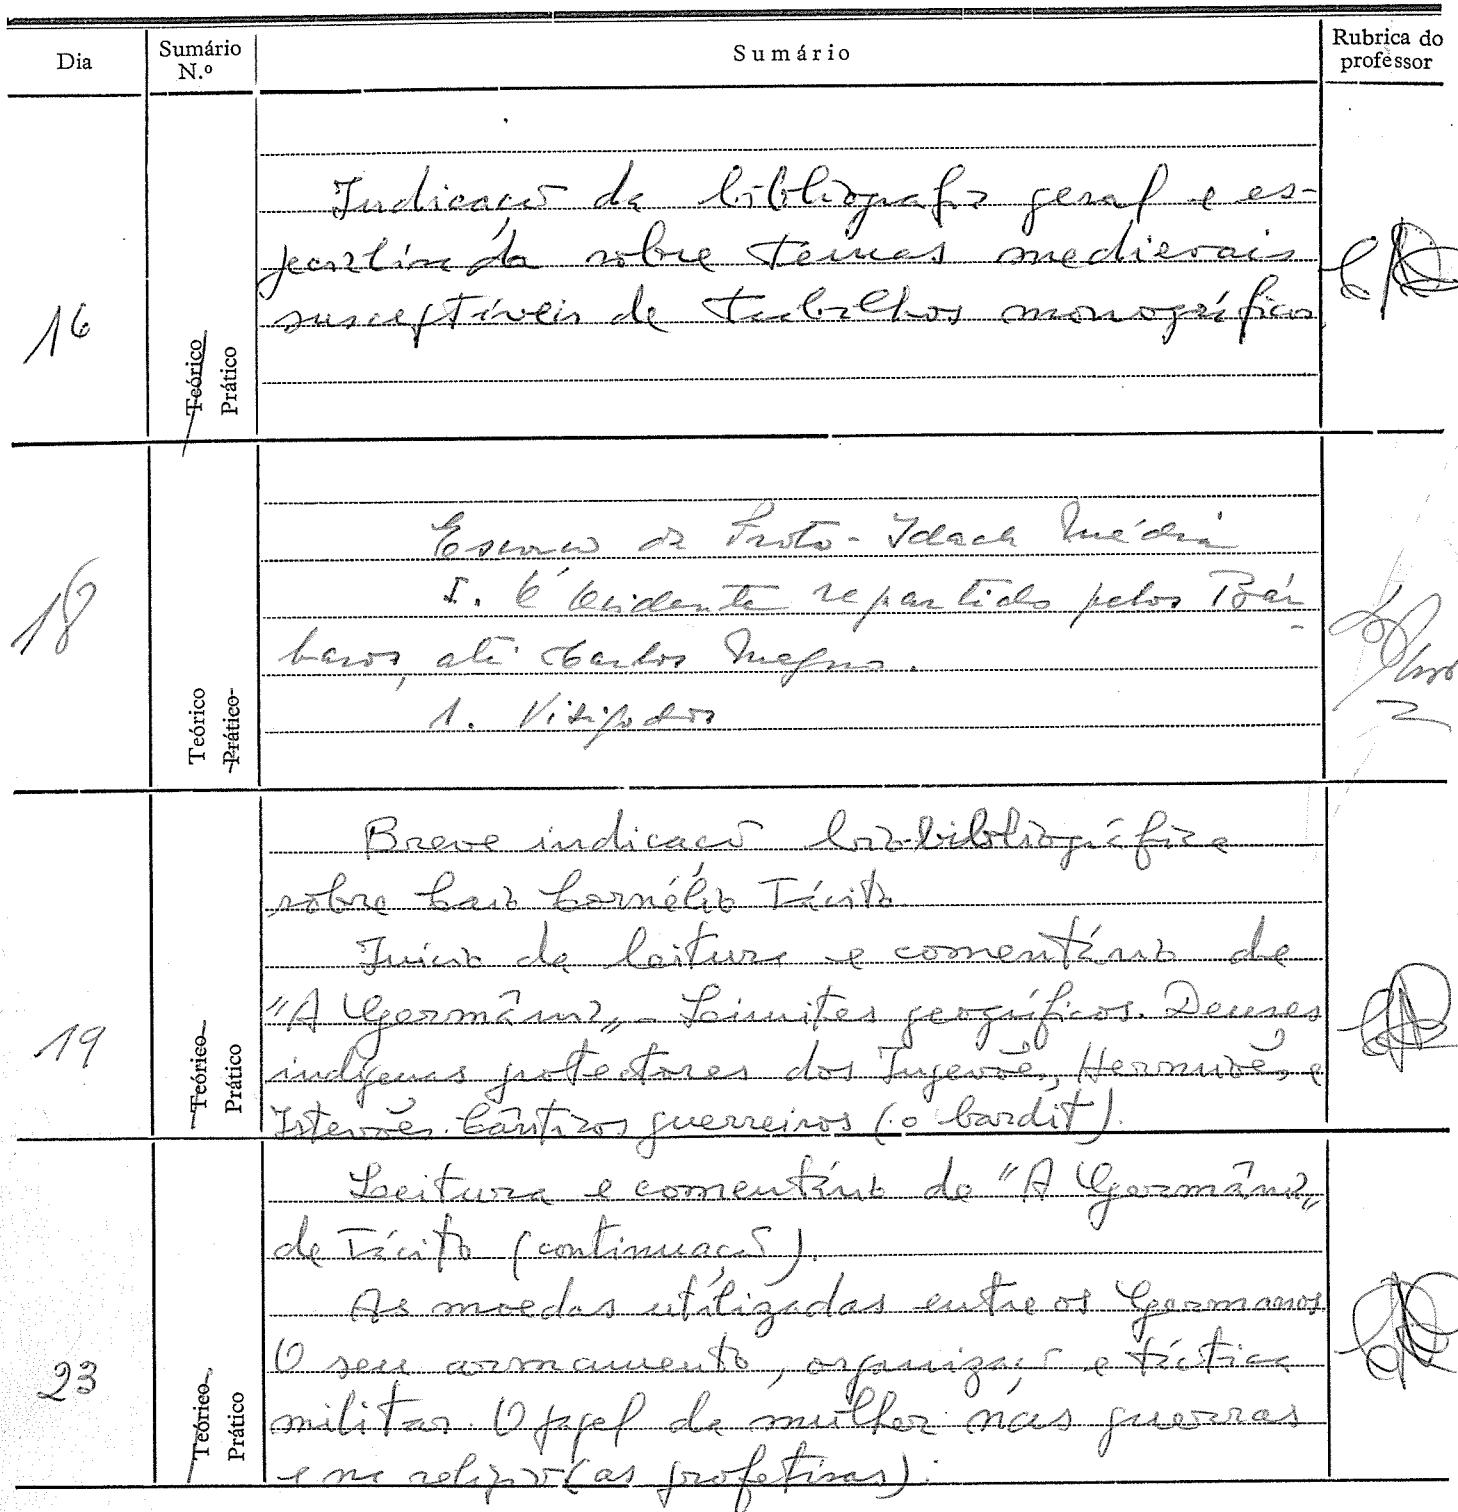 Dia
Sumário N.º
Sumário
Rubrica do professor
16
Teórico
Prático
Indicação da bibliografia geral e es-
pecializada sobre temas medievais
susceptíveis de trabalhos monográficos
18
Teórico
Prático
Esboço da Proto-Idade Média
I. O Ocidente repartido pelos Bár-
baros, até Carlos Magno.
1. Visigodos
19
Teórico
Prático
Breve indicação bio-bibliográfica
sobre Caio Cornélio Tácito
Início da leitura e comentário de
"A Germânia" – Limites geográficos. Deuses
indígenas protectores dos Ingevões, Hermiões e
Istevões. Cânticos guerreiros (o bardit).
23
Teórico
Prático
Leitura e comentário de "A Germânia"
de Tácito (continuação).
As moedas utilizadas entre os Germanos
O seu armamento, organização e táctica
militar. O papel da mulher nas guerras
e na religião (as profetisas).